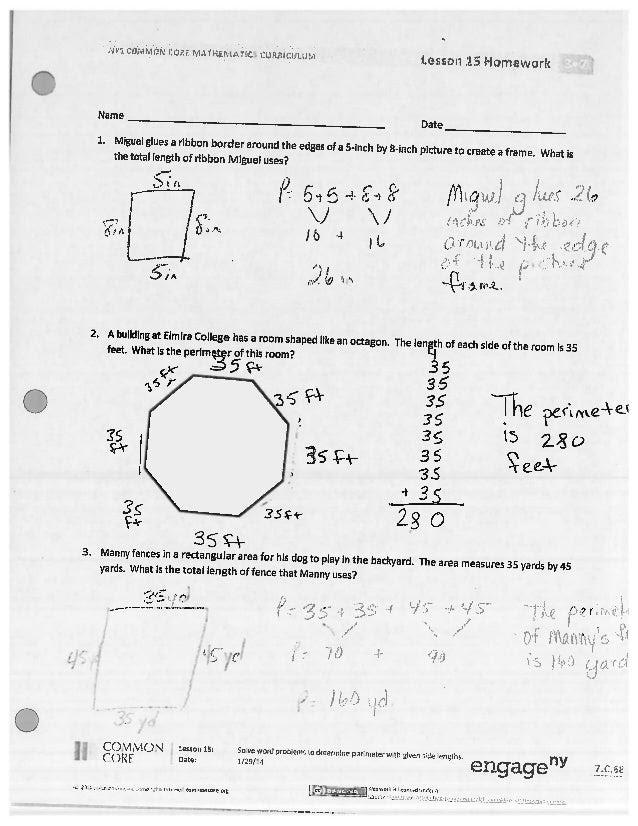 NYS COMMON CORE MATHEMATICS CURRICULUM
Lesson 15 Homework 3•7
Name
Date
1. Miguel glues a ribbon border around the edges of a 5-inch by 8-inch picture to create a frame. What is
the total length of ribbon Miguel uses?
5in
8in
8in
5in
P= 5+5+8+8
10 + 16
26 in
Miguel glues 26
inches of ribbon
around the edge
of the picture
frame.
2. A building at Elmira College has a room shaped like an octagon. The length of each side of the room is 35
feet. What is the perimeter of this room?
35 ft
35 ft
35 ft
35 ft
35 ft
35 ft
35 ft
35 ft
4
35
35
35
35
35
35
35
+ 35
280
The perimeter
is 280
feet
3. Manny fences in a rectangular area for his dog to play in the backyard. The area measures 35 yards by 45
yards. What is the total length of fence that Manny uses?
35 yd
45
45 yd
35 yd
P= 35 + 35 + 45 + 45
P= 70 + 90
P= 160 yd.
The perimet
of Manny's f
is 160 yard
COMMON
CORE
Lesson 15:
Date:
Solve word problems to determine perimeter with given side lengths.
1/29/14
engage ny
7.C.68